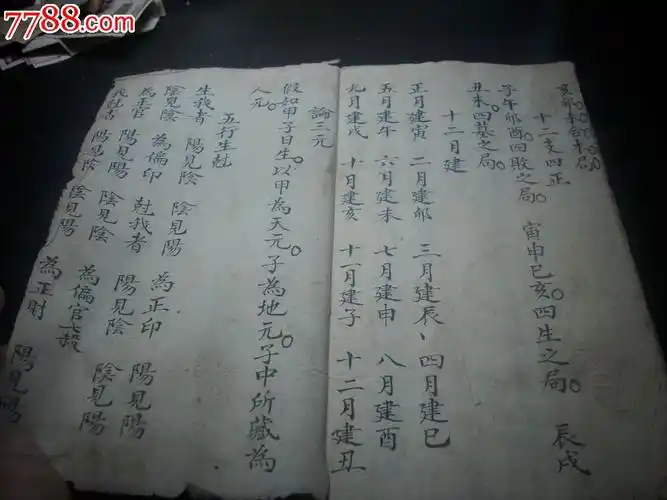 7788.com
亥卯未合木局
十二支四正
子午卯酉四敗之局 寅申巳亥四生之局 辰戌
丑未四墓之局
十二月建
正月建寅 二月建卯 三月建辰、四月建巳
五月建午 六月建未 七月建申 八月建酉
九月建戌 十月建亥 十一月建子 十二月建丑
論三元
假如甲子日生以甲為天元子為地元子中所藏為
人元
五行生尅
生我者 陽見陰 陰見陽 為正印 陽見陽
陰見陰 為偏印 尅我者 陽見陰 陰見陽
為正官 陽見陽 陰見陰 為偏官七殺
我尅者 陽見陰 陰見陽 為正財 陽見陽